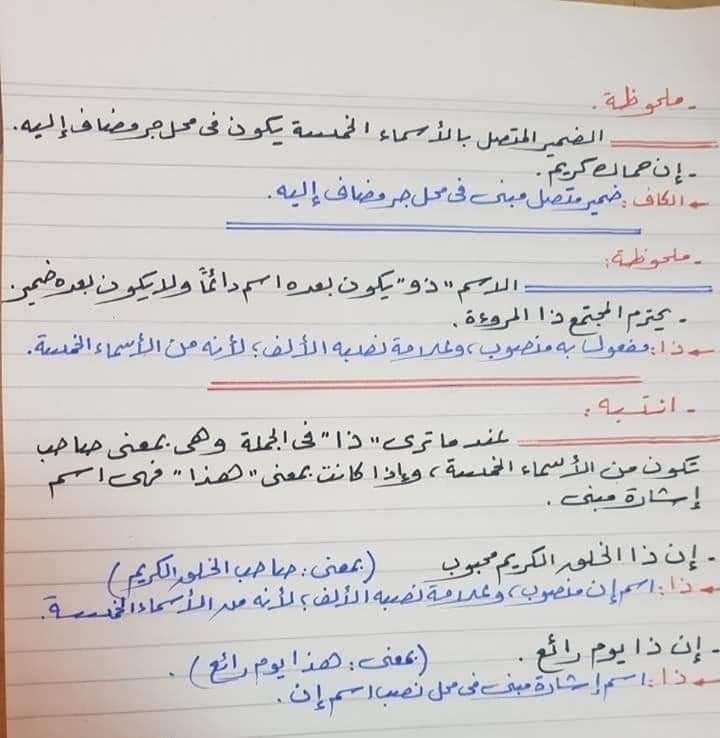 - ملحوظة.
الضمير المتصل بالأسماء الخمسة يكون فى محل جر مضاف إليه.
- إن حماك كريم.
الكاف: ضمير متصل مبنى فى محل جر مضاف إليه.
- ملحوظة:
الاسم "ذو" يكون بعده اسم دائماً ولا يكون بعده ضمير.
- يحترم المجتمع ذا المروءة.
ذا: مفعول به منصوب، وعلامة نصبه الألف؛ لأنه من الأسماء الخمسة.
- انتبه:
عندما ترى "ذا" فى الجملة وهى بمعنى صاحب
تكون من الأسماء الخمسة، وإذا كانت بمعنى "هذا" فهى اسم
إشارة مبنى.
- إن ذا الخلق الكريم محبوب (بمعنى: صاحب الخلق الكريم)
ذا: اسم إن منصوب، وعلامة نصبه الألف؛ لأنه من الأسماء الخمسة.
- إن ذا يوم رائع. (بمعنى: هذا يوم رائع).
ذا: اسم إشارة مبنى فى محل نصب اسم إن.